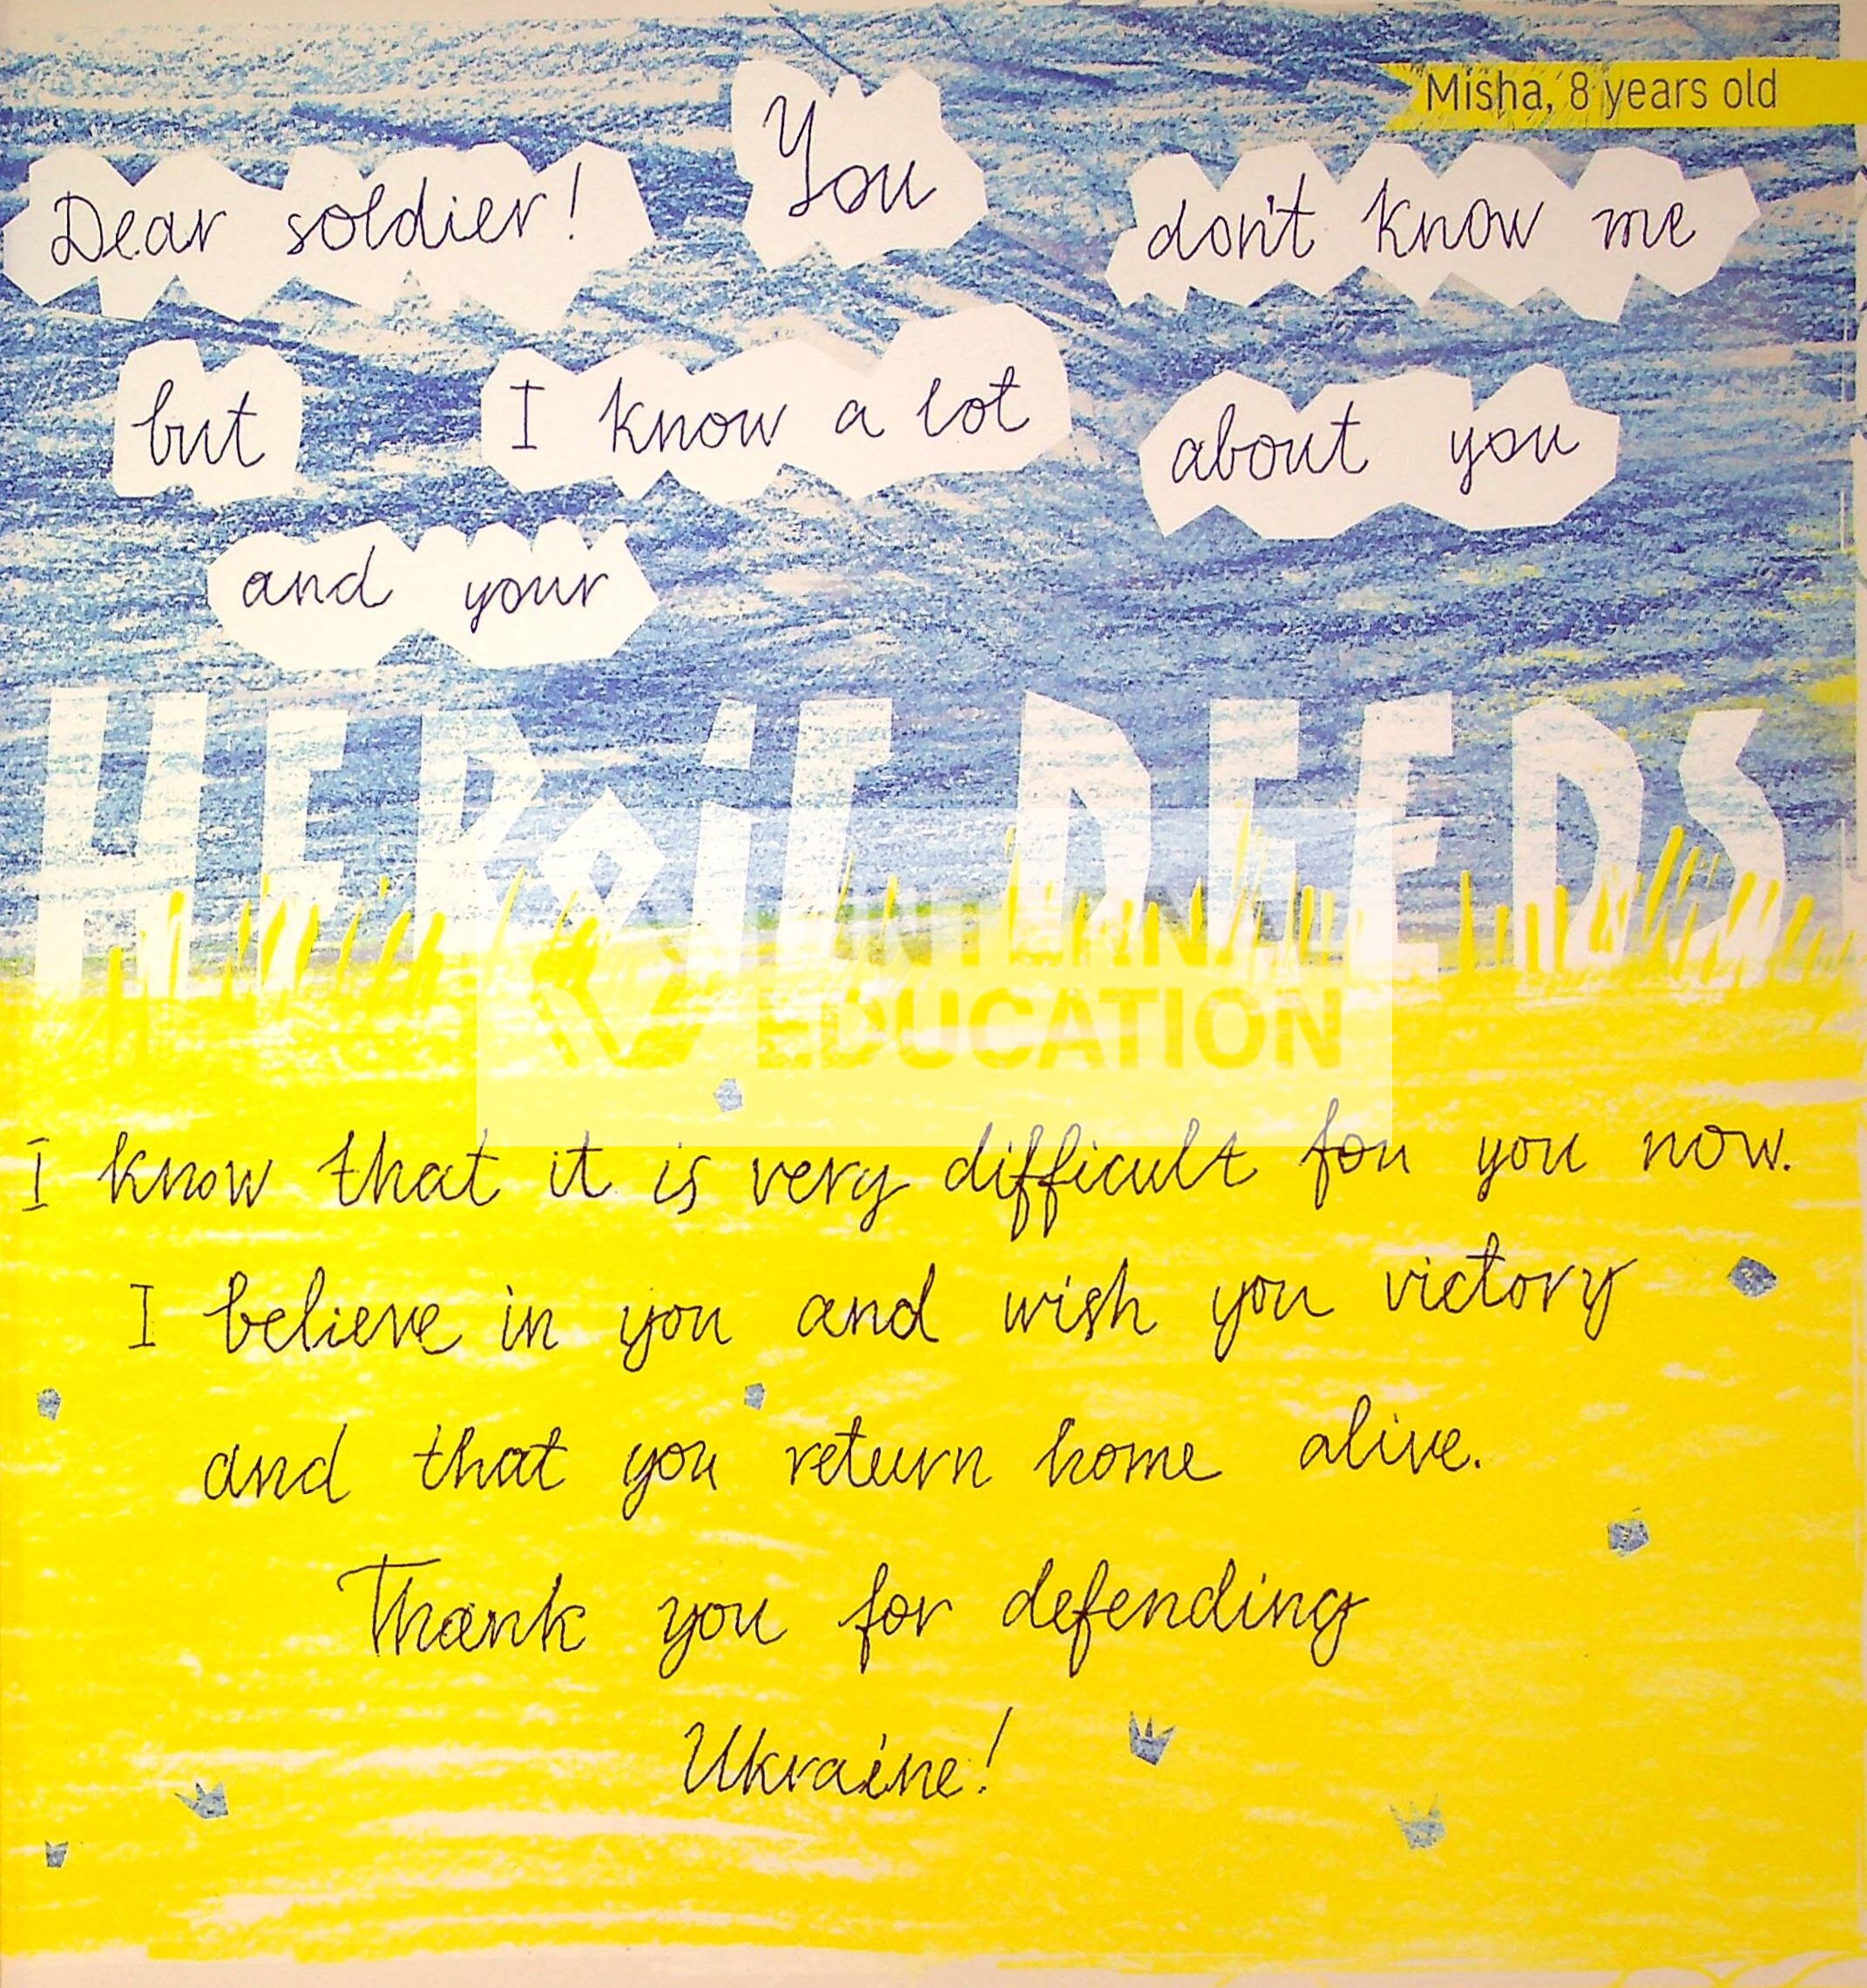 Misha, 8 years old
Dear soldier! You don't know me
but I know a lot about you
and your
HEROiC DEEDS
EDUCATION
I know that it is very difficult fou you now.
I believe in you and wish you victory
and that you return home alive.
Thank you for defending
Ukraine!